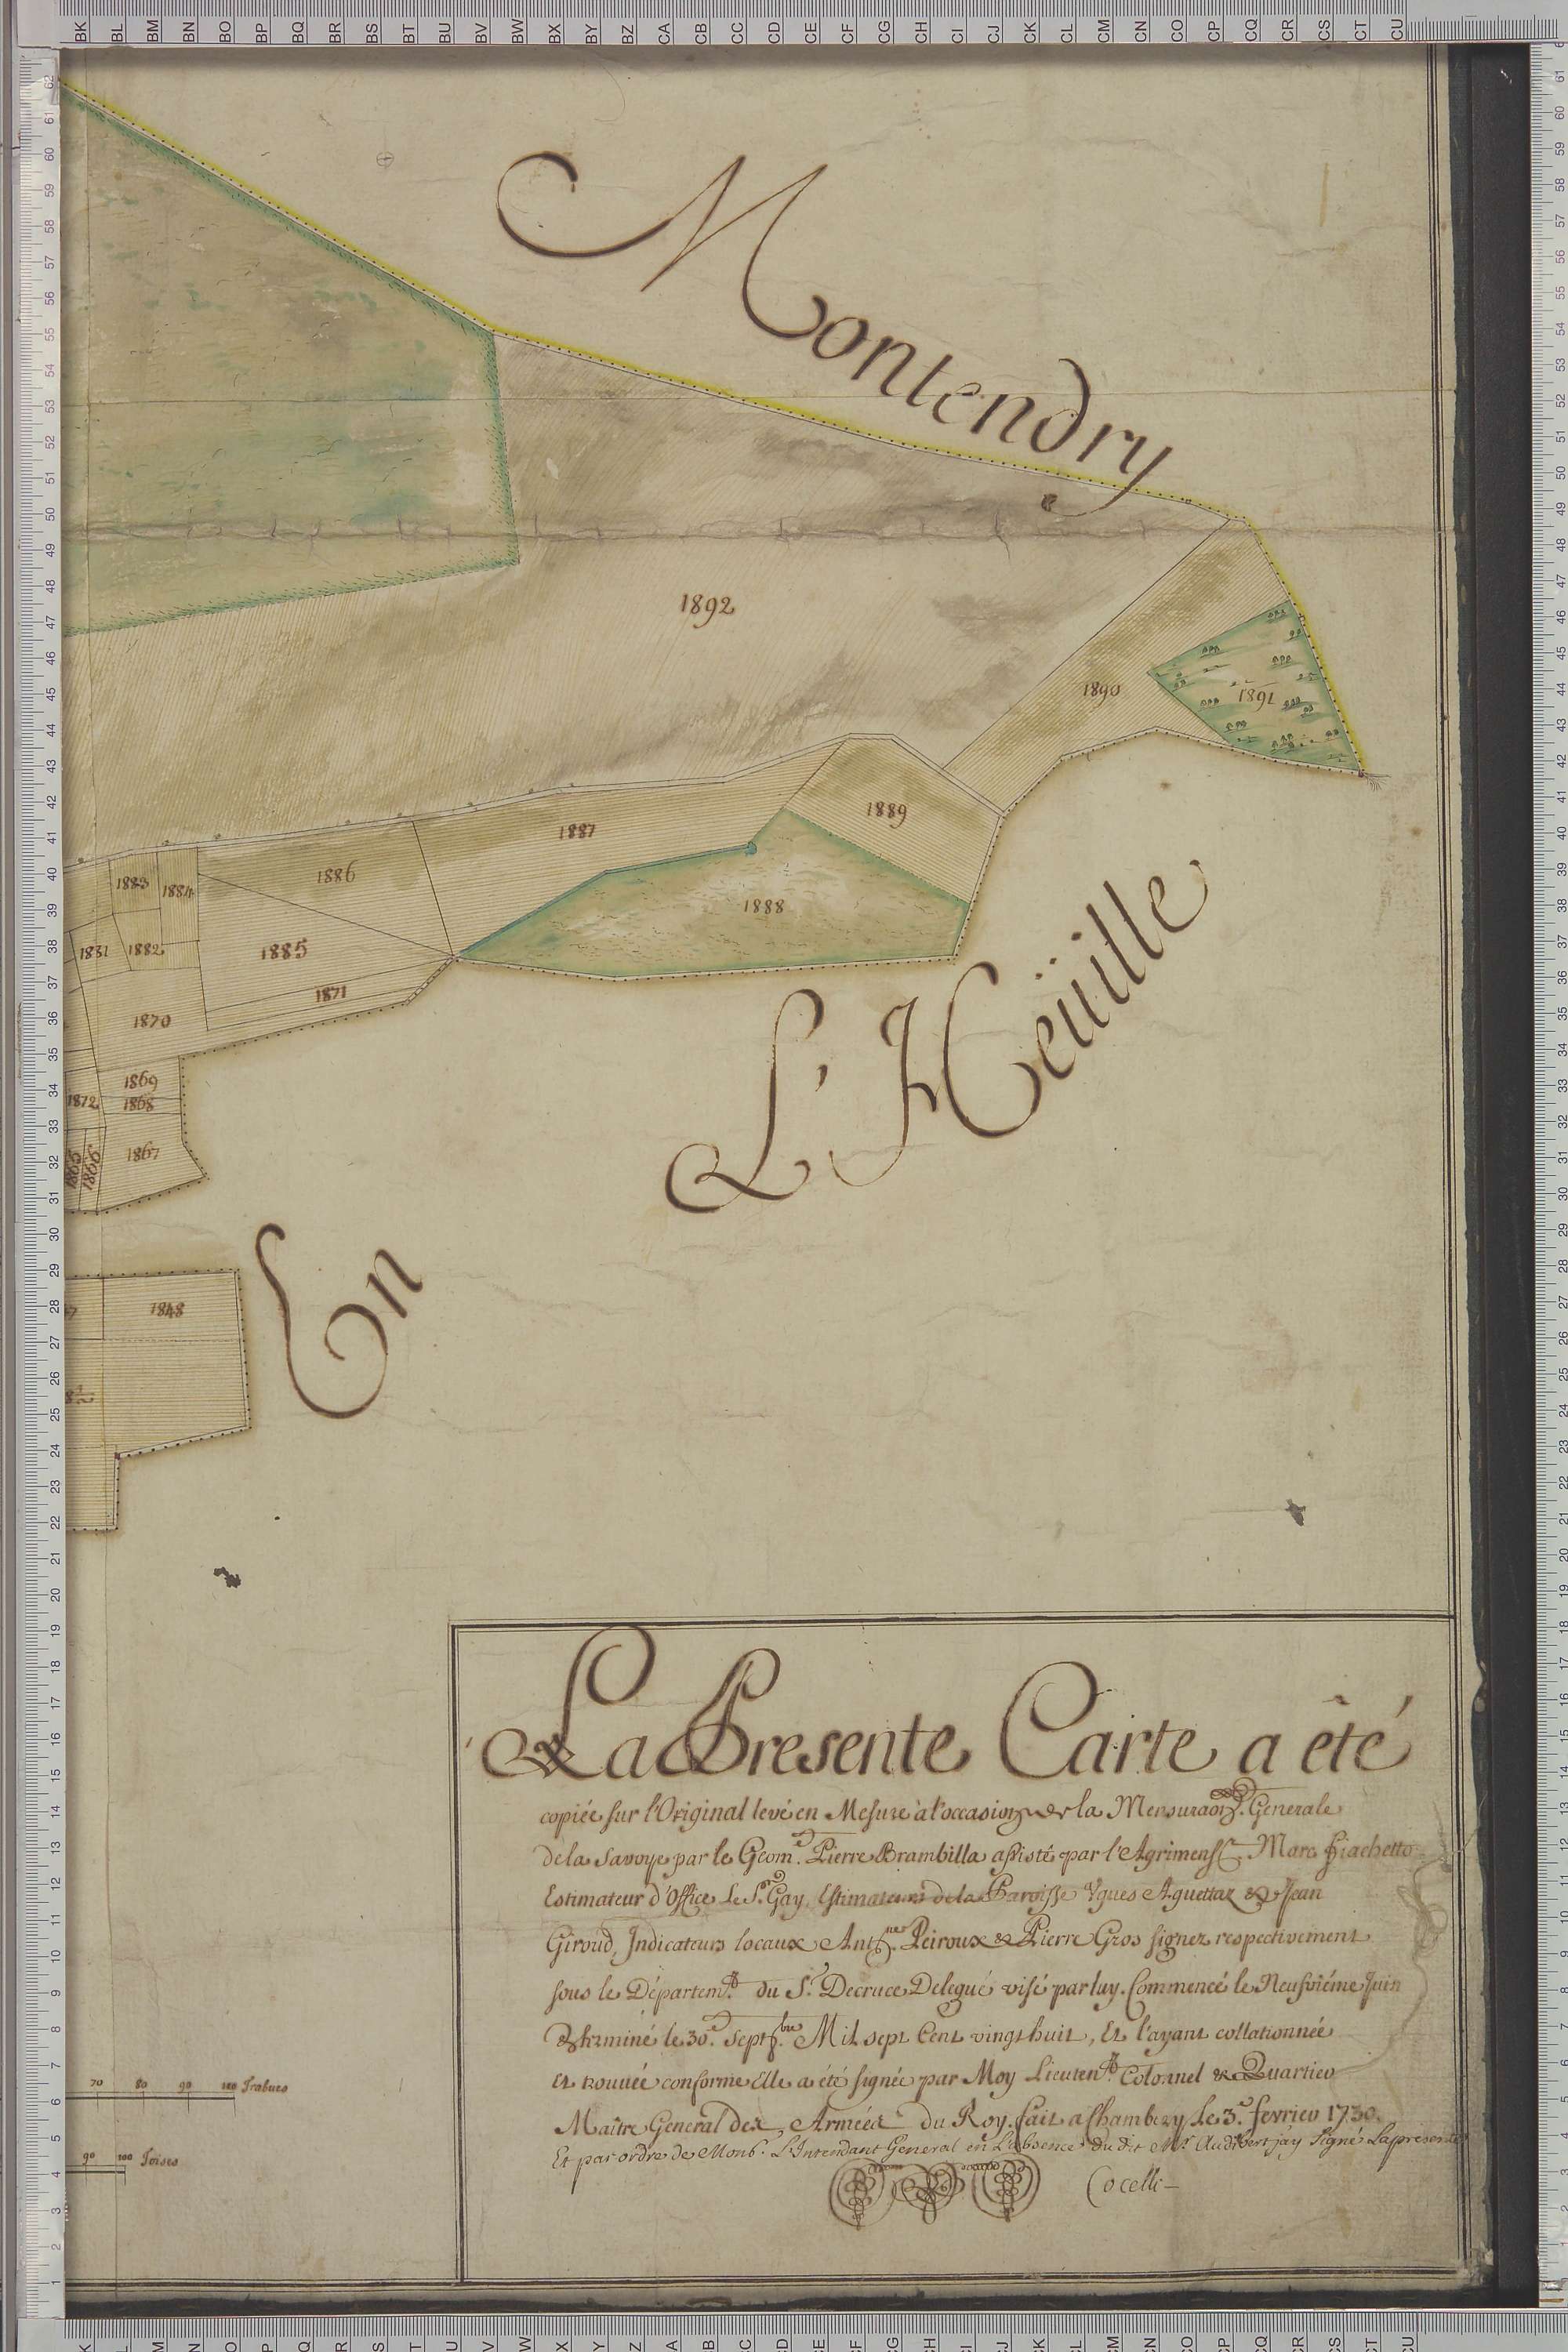 BK BL BM BN BO BP BQ BR BS BT BU BV BW BX BY BZ CA CB CC CD CE CF CG CH CI CJ CK CL CM CN CO CP CQ CR CS CT CU
Montendry
1892
1890
1891
1889
1887
1888
1886
1883
1884
1885
1882
1881
1871
1870
1869
1868
1872
1867
1865
1866
1848
En L'Heüille
La Presente Carte a êté
copiée sur l'Original levé en Mesure à l'occasion de la Mensuraon. Generale
de la Savoye par le Geom.e Pierre Brambilla assisté par l'Agrimens.r Marc Fiachetto
Estimateur d'Office Le S.r Gay, Estimateurs de la Paroisse Ygues Aguettaz & Jean
Giroud, Indicateurs locaux Ant.ne Peiroux & Pierre Gros signez respectivement
sous le Départem.t du S.r Decruce Delegué visé par luy. Commencé le Neufviéme Juin
& terminé le 30.e Sept.bre Mil sept Cent vingt huit, Et l'ayant collationnée
et trouvée conforme Elle a été signée par Moy Lieuten.t Colonnel & Quartier
Maître General des Armées du Roy. fait a Chambery Le 3.e fevrier 1730.
Et par ordre de Mons.r L'Intendant General en L'absence du dit M.r Audibert jay Signé La presente
Cocelli
70 80 90 100 Trabucs
90 100 Toises